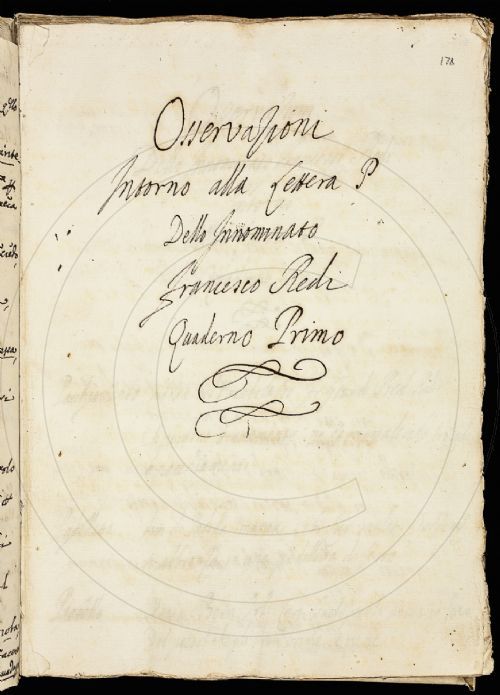 178
Osservazioni
Intorno alla Lettera P
Dello Innominato
Francesco Redi
Quaderno Primo